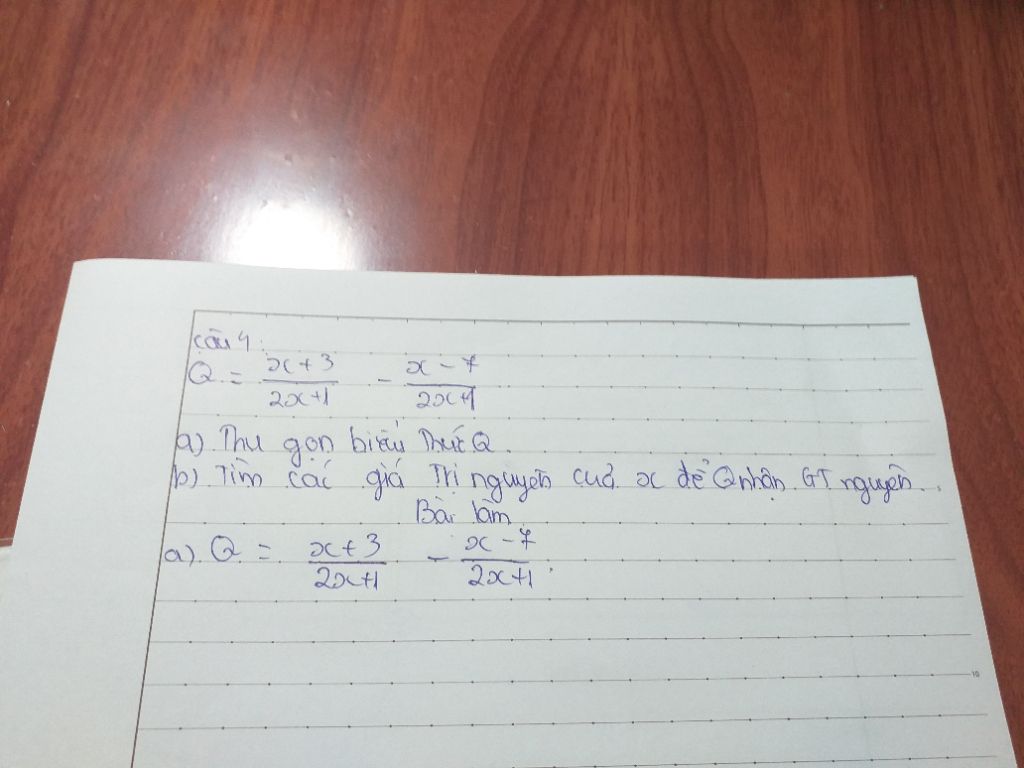 Câu 4:
Q = x+3/2x+1 - x-7/2x+1
a) Thu gọn biểu thức Q.
b) Tìm các giá trị nguyên của x để Q nhận GT nguyên.
Bài làm
a) Q = x+3/2x+1 - x-7/2x+1.
10